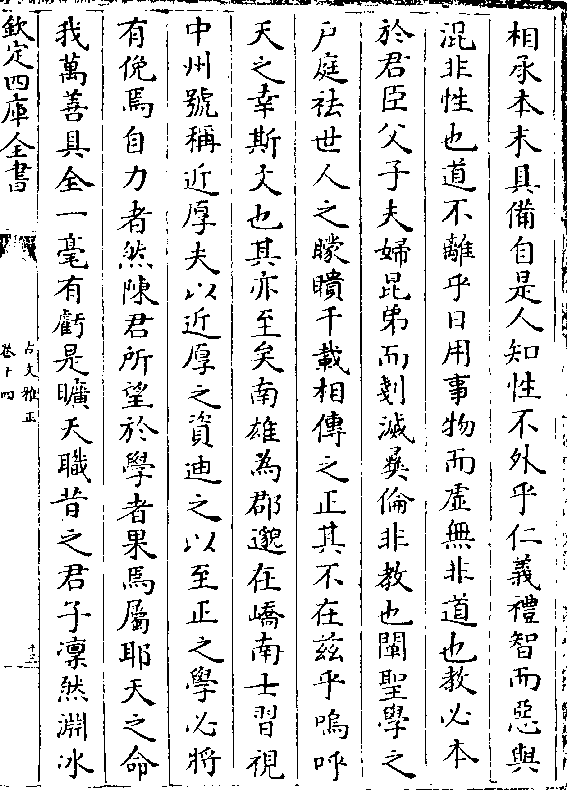 相承本末具備自是人知性不外乎仁義禮智而惡與
混非性也道不離乎日用事物而虛無非道也教必本
於君臣父子夫婦昆弟而剗滅彞倫非教也闡聖學之
户庭祛世人之矇瞶千載相傳之正其不在兹乎嗚呼
天之幸斯文也其亦至矣南雄為郡邈在嶠南士習視
中州號稱近厚夫以近厚之資廸之以至正之學必將
有俛焉自力者然陳君所望於學者果焉屬耶天之命
我萬善具全一毫有虧是曠天職昔之君子凛然淵冰
欽定四庫全書
古文雅正
卷十四
十三